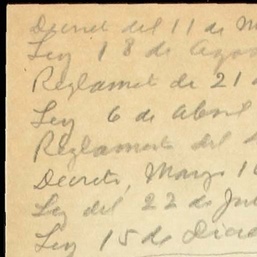 Decret del 11 de M
Ley 18 de Agos
Reglamet de 21 d
Ley 6 de Abril
Reglamento del
Decreto, Marzo 1
Ley del 22 de Ju
Ley 15 de Dici